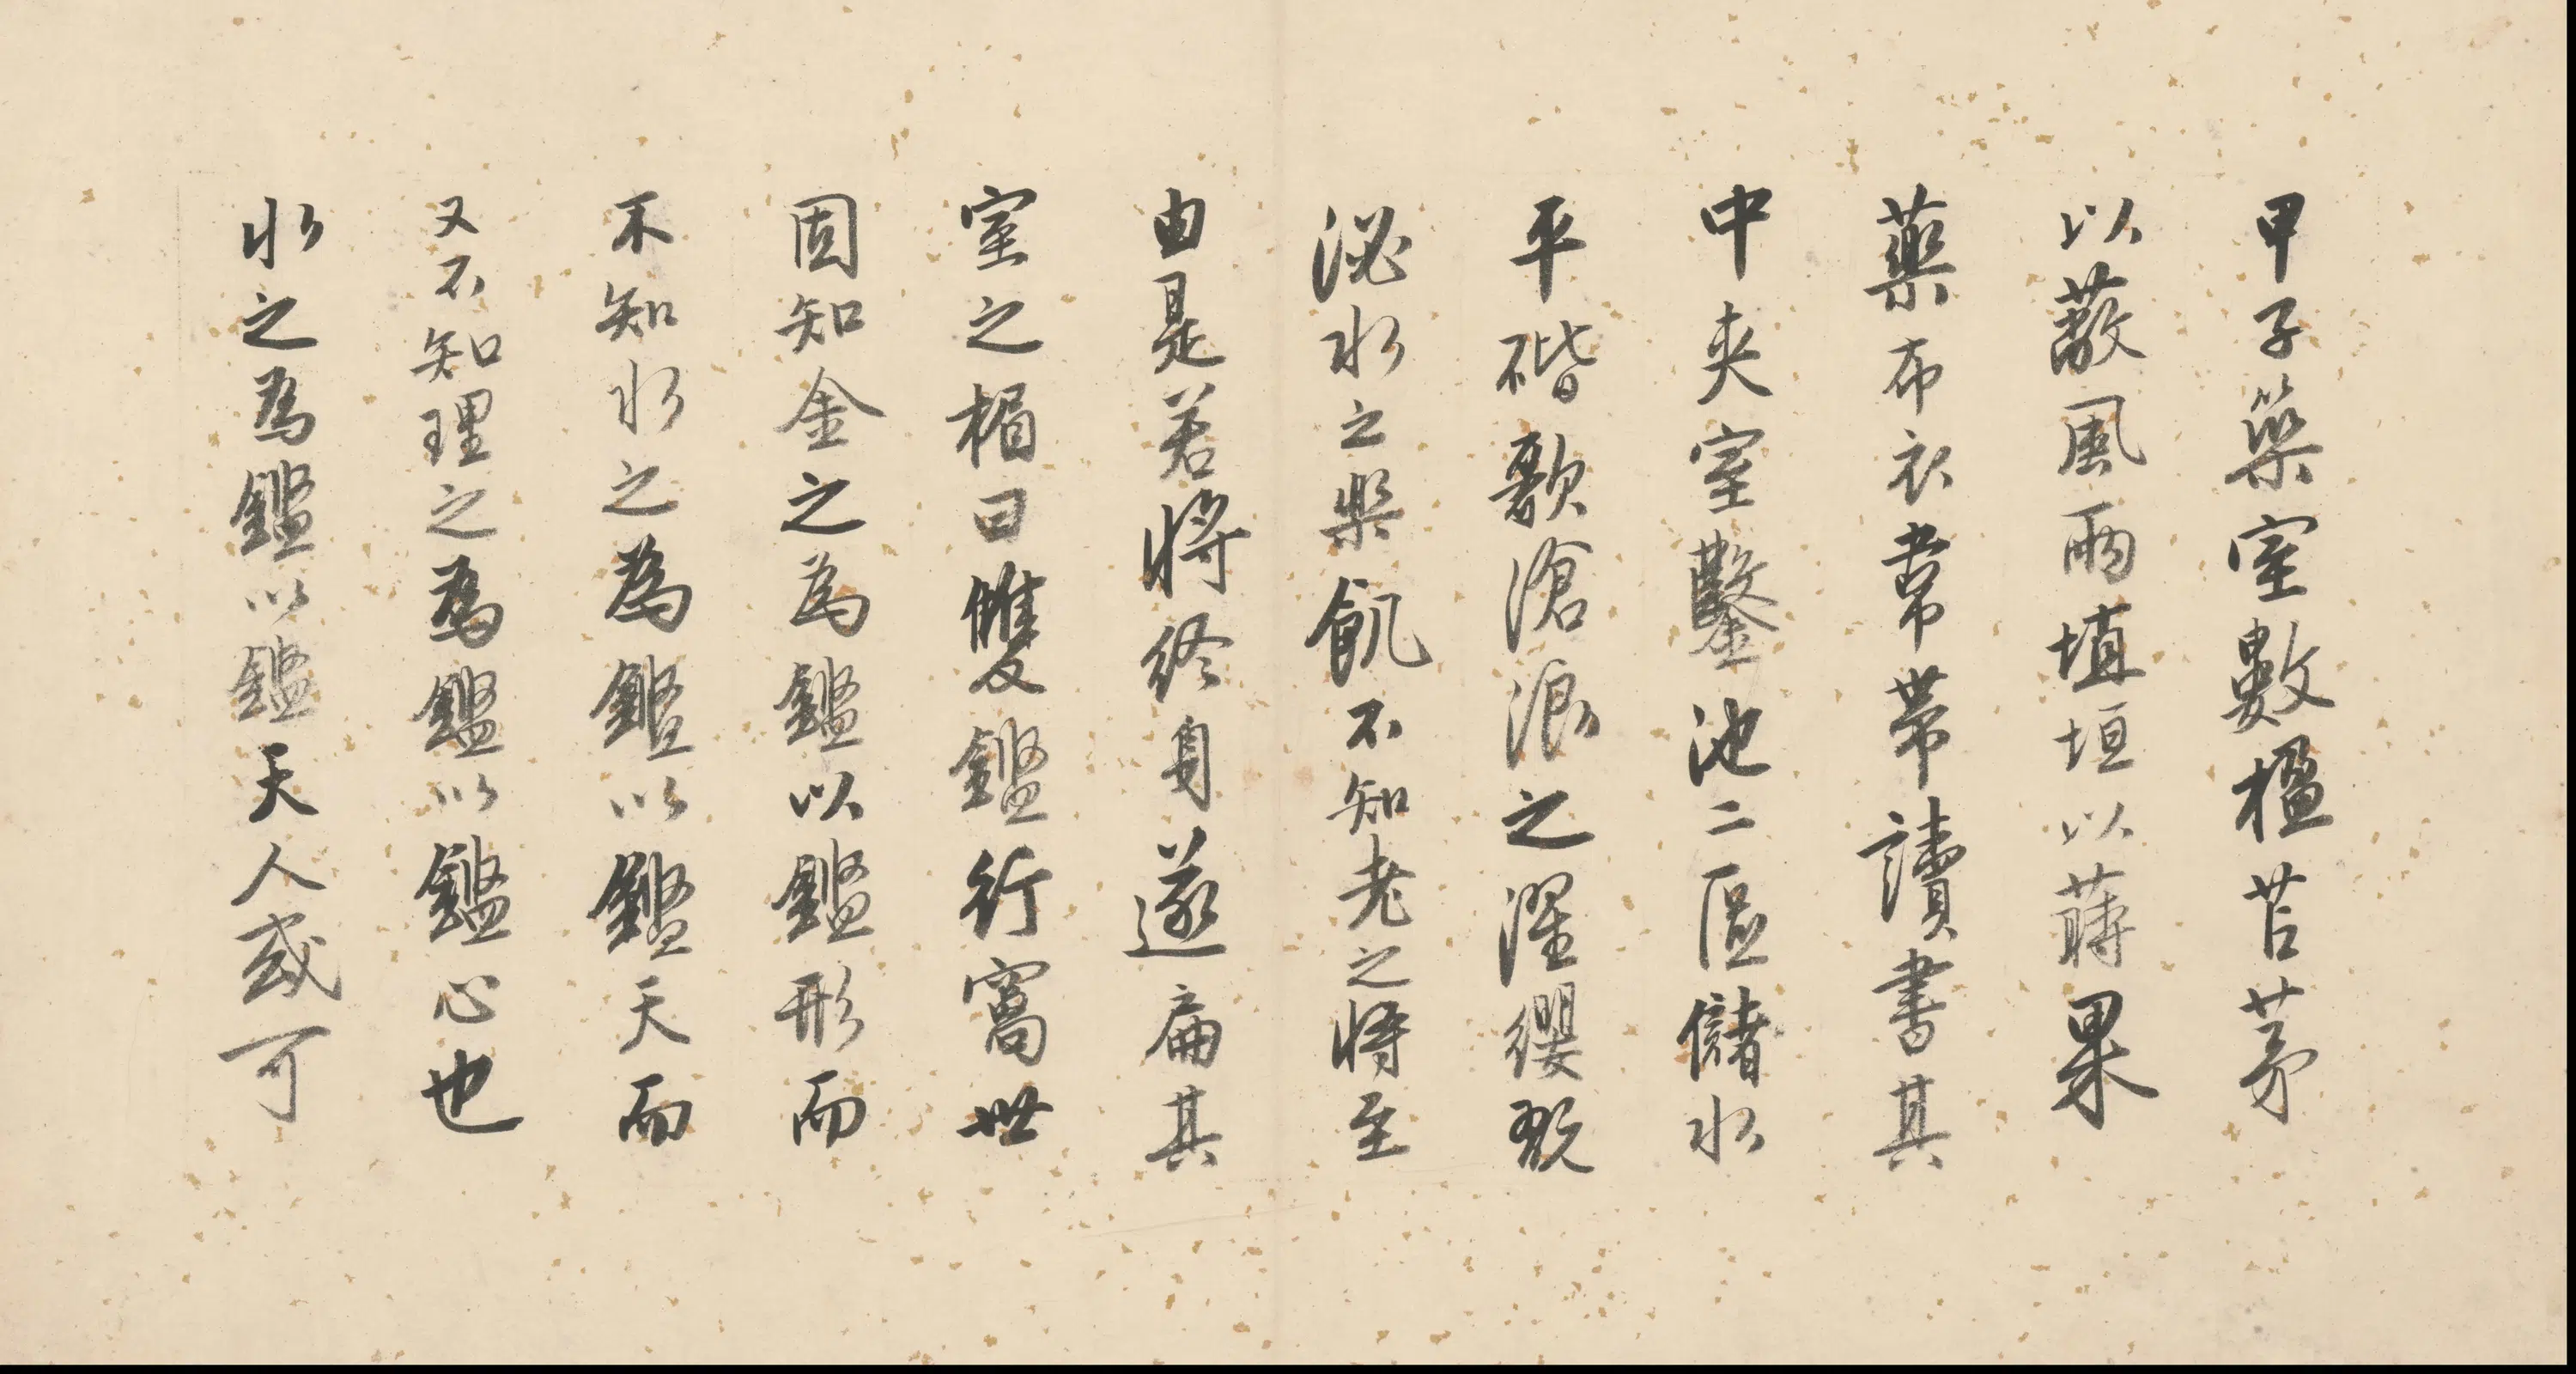 甲子築室數楹苫茅
以蔽風雨埴垣以蒔果
藥布衣韋帶讀書其
中夾室鑿池二區儲水
平階歌滄浪之濯纓翫
泌水之樂飢不知老之將至
由是若將終身遂扁其
室之楣曰雙鑑行窩世
固知金之為鑑以鑑形而
不知水之為鑑以鑑天而
又不知理之為鑑以鑑心也
水之為鑑以鑑天人或可